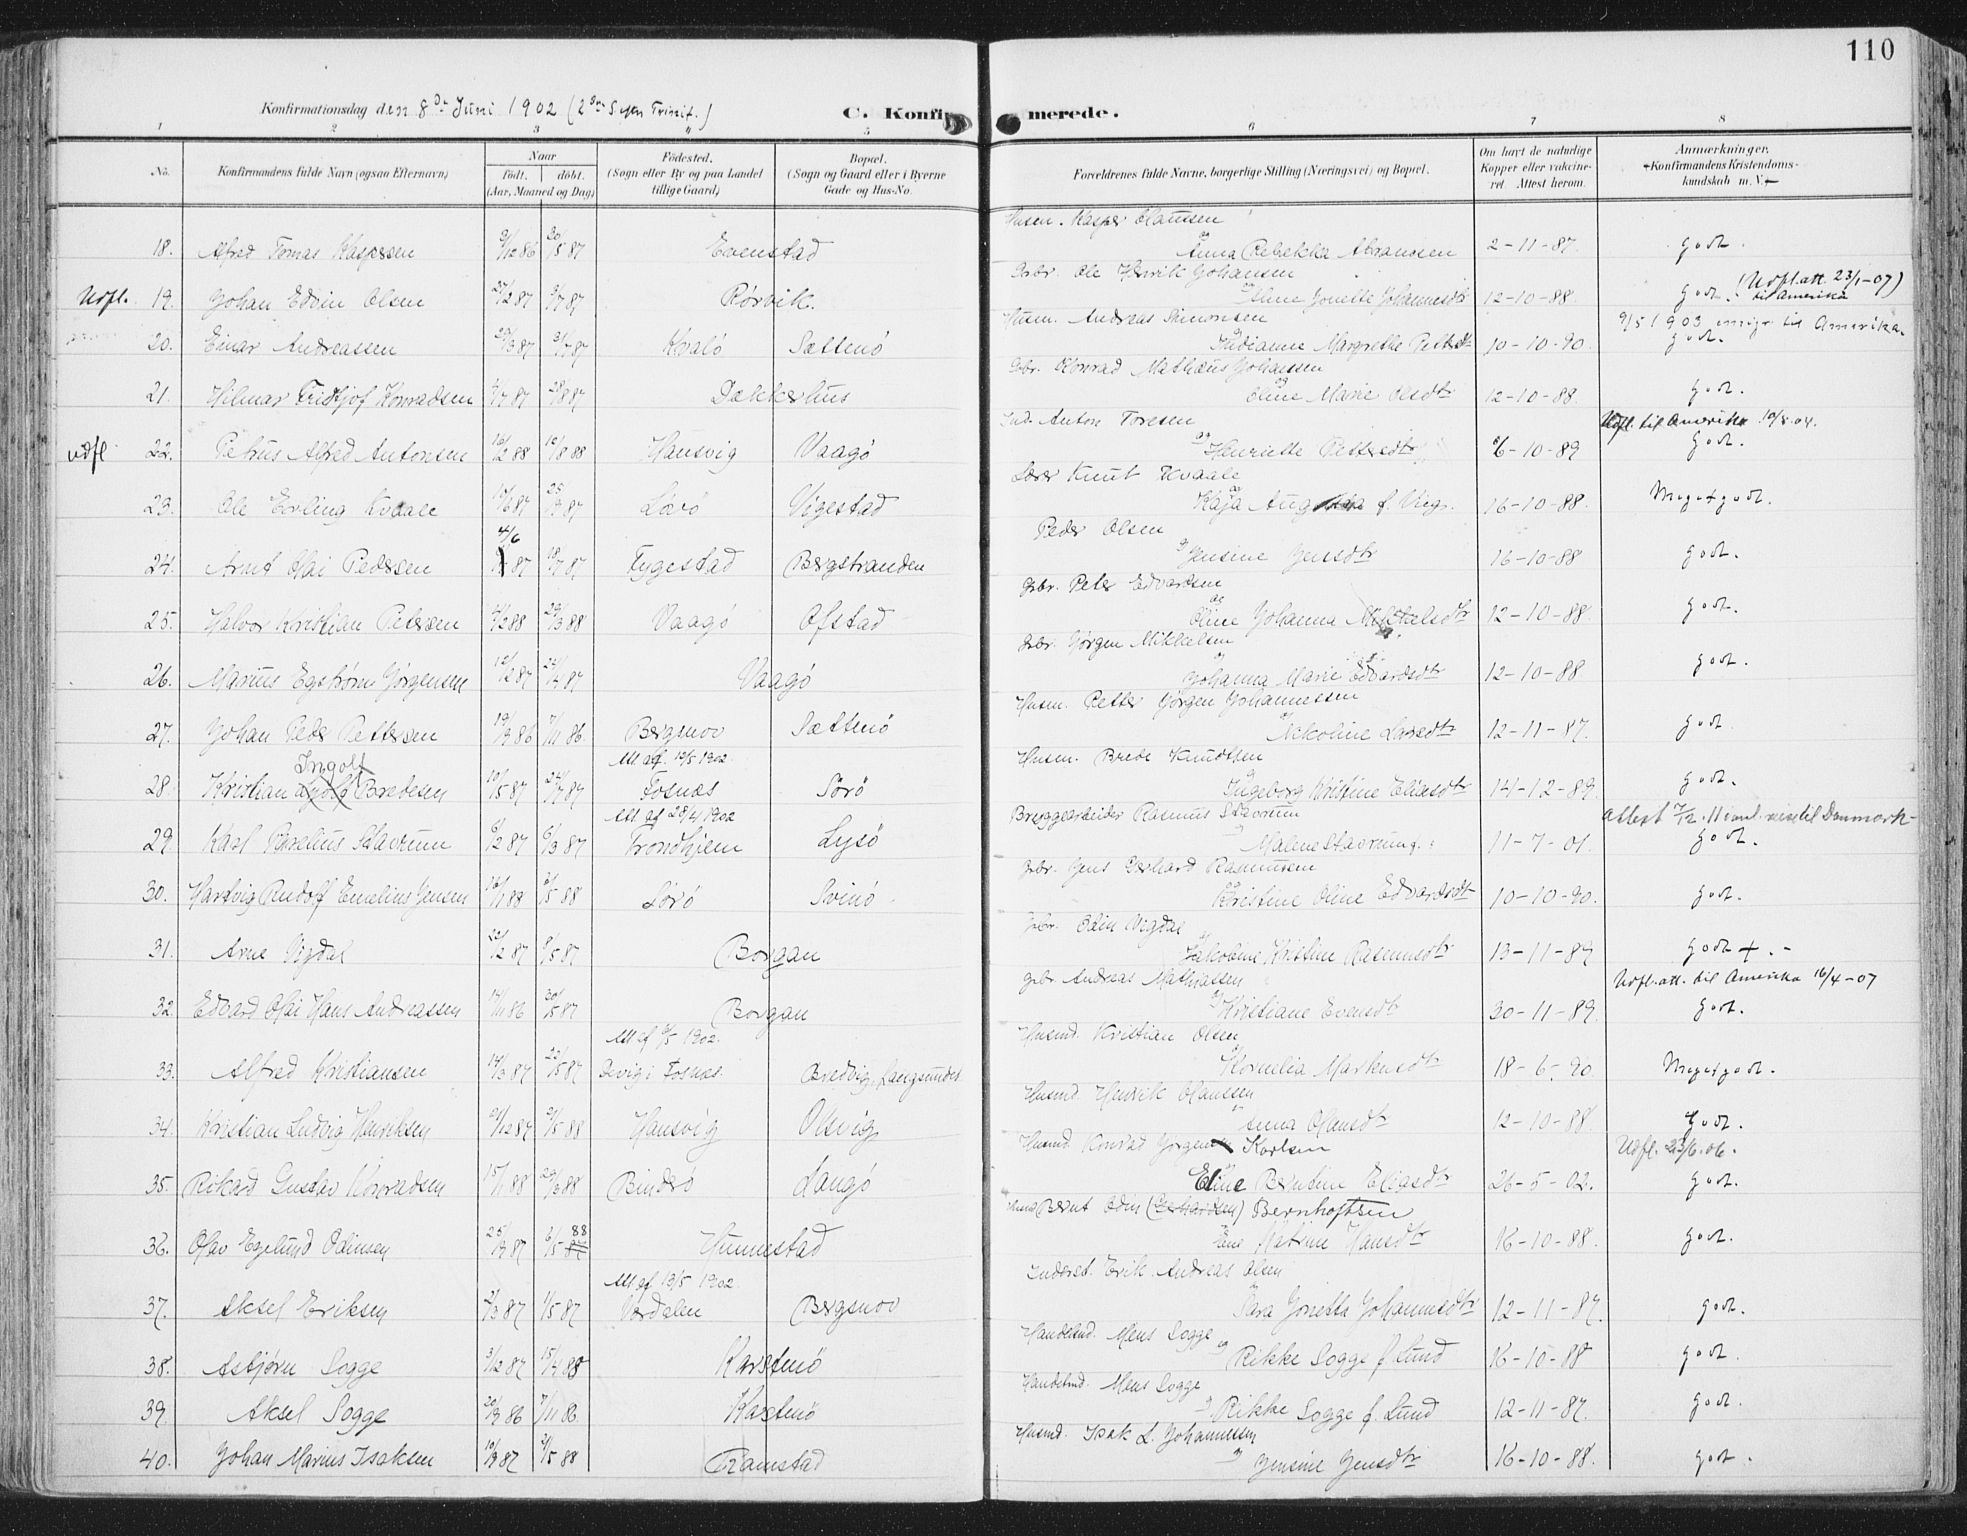 110
Konfirmationsdag den 8de Juni 1902 (2den S. efter Trinit.) C. Konfirmerede.
1 2 3 4 5 6 7 8
No. Konfirmandens fulde Navn (ogsaa Efternavn) Naar født. døbt. (Aar, Maaned og Dag) Födested. (Sogn eller By og paa Landet tillige Gaard) Bopæl. (Sogn og Gaard eller i Byerne Gade og Hus-No. Forældrenes fulde Navne, borgerlige Stilling (Næringsvei) og Bopæl. Om havt de naturlige Kopper eller vakcineret. Attest herom. Anmærkninger. Konfirmandens Kristendomskundskab m. V.
Husm. Kasper Olaussen
18. Alfred Tomas Kaspersen 9/12 86 20/5 87 Evenstad og Anna Rebekka Abramsen 2-11-87. godt.
Gbr. Ole Henrik Johansen (Udfl.att. 23/1-07)
Udfl. 19. Johan Edvin Olsen 27/2 87 3/7 87 Rørvik. Oline Jonette Johannesdtr 12-10-88. godt. til Amerika
Husm. Andreas Simonsen 9/5 1903 emigr til Amerika.
20. Einar Andreassen 20/3 87 31/7 87 Kvalö Sættenö Indianne Margrethe Pettersdtr 10-10-90. godt.
Gbr. Konrad Mathæus Johansen
21. Hilmar Fridtjof Konradsen 4/7 87 28/8 87 Dekkerhus Oline Marie Olsdtr 12-10-88. godt.
Ind. Anton Toresen Udfl. til Amerika 10/8.04.
udfl 22. Petrus Alfred Antonsen 16/2 88 19/8 88 Hansvig Vaagö og Henriette Pettersdtr 6-10-89 godt.
Lærer Knut Kvaale
23. Ole Erling Kvaale 10/6 87 25/7 87 Lörö Vigestad og Kaja Augusta f. Ving. 16-10-88. Meget godt.
Peder Olsen
24. Arnt Olai Pedersen 4/6 87 18/7 87 Fygestad Bergstranden og Jensine Jensdtr 16-10-88 godt.
Gbr. Peter Edvardsen
25. Halvor Kristian Petersen 4/2 88 29/3 88 Vaagö Ofstad og Oline Johanna Mikkelsdtr 12-10-88. godt.
Gbr. Jørgen Mikkelsen
26. Marius Egstrøm Jørgensen 12/2 87 24/4 87 Vaagö og Johanna Marie Edvardsdtr 12-10-88 godt.
Husm. Petter Jørgen Johannessen
27. Johan Peder Pettersen 19/9 86 7/11 86. Bergsnov Sættenö Nikoline Larsdtr 12-11-87. godt.
Ingolf Att. af 19/5 1902 Husm. Brede Knudtsen
28. Kristian Bredesen 10/5 87 24/7 87 Fosnæs Sörö og Ingeborg Kristine Eliasdtr 14-12-89. godt.
Att. af 28/4 1902 Bryggearbeider Rasmus Stavrum attest 7/12.11 i anl. reise til Danmark
29. Karl Parelius Stavrum 6/2 87 6/3 87 Trondhjem Lysö Malene Stavrum f. 11-7-01. godt.
Gbr. Jens Gerhard Rasmussen
30. Hartvig Rudolf Emelius Jensen 16/1 88 6/5 88 Sörö Svinö og Kristine Oline Edvardsdtr 10-10-90. godt.
Gbr. Odin Vigdal
31. Arne Vigdal 22/2 87 8/5 87 Borgan og Jakobine Kristine Rasmusdtr 13-11-89 godt +. -
Gbr. Andreas Mathiassen Udfl. att. til Amerika 16/4-07
32. Edvard Olai Hans Andreassen 14/11 86 30/5 87 Borgan og Kristiane Evensdtr 30-11-89. godt.
Att af 6/5 1902. Husmd. Kristian Olsen
33. Alfred Kristiansen 14/3 87 20/5 87 Devig i Fosnæs Bredvig, Langsundet og Kornelia Markusdtr 18-6-90 Meget godt.
Husmd. Henrik Olaussen
34. Kristian Ludvig Henriksen 21/12 87 9/5 88 Hansvig Olsvig Anna Olausdtr 12-10-88. godt.
Husmd. Konrad Jørgen Karlsen Udfl. 23/6.06.
35. Rikard Gustav Konradsen 15/1 88 29/3 88 Bindsö Langö Eline Berntine Eliasdtr 26-5-02. godt.
Husmd Bernt Odin (Gerhardsen) Bernhoftsen
36. Olav Egelund Odinsen 25/9 87 6/5 88 Hunnestad Ene Katrine Hansdtr 16-10-88. godt.
Att af 13/5 1902. Inderst. Erik Andreas Olsen
37. Aksel Eriksen 2/3 87 1/5 87 Værdalen Bergsnov Sara Jonetta Johannesdtr 12-11-87. godt.
Handelsmd. Mons Sogge
38. Asbjørn Sogge 3/12 87 15/4 88 Karstnö og Rikke Sogge f. Lund 16-10-88 godt.
Handelsmd. Mons Sogge
39. Aksel Sogge 20/9 86 7/11 86. Karstnö og Rikke Sogge f. Lund 12-11-87. godt.
Husmd. Isak L. Johannessen
40. Johan Marius Isaksen 10/9 87 2/5 88 Framstad og Jensine Jensdtr 16-10-88. godt.